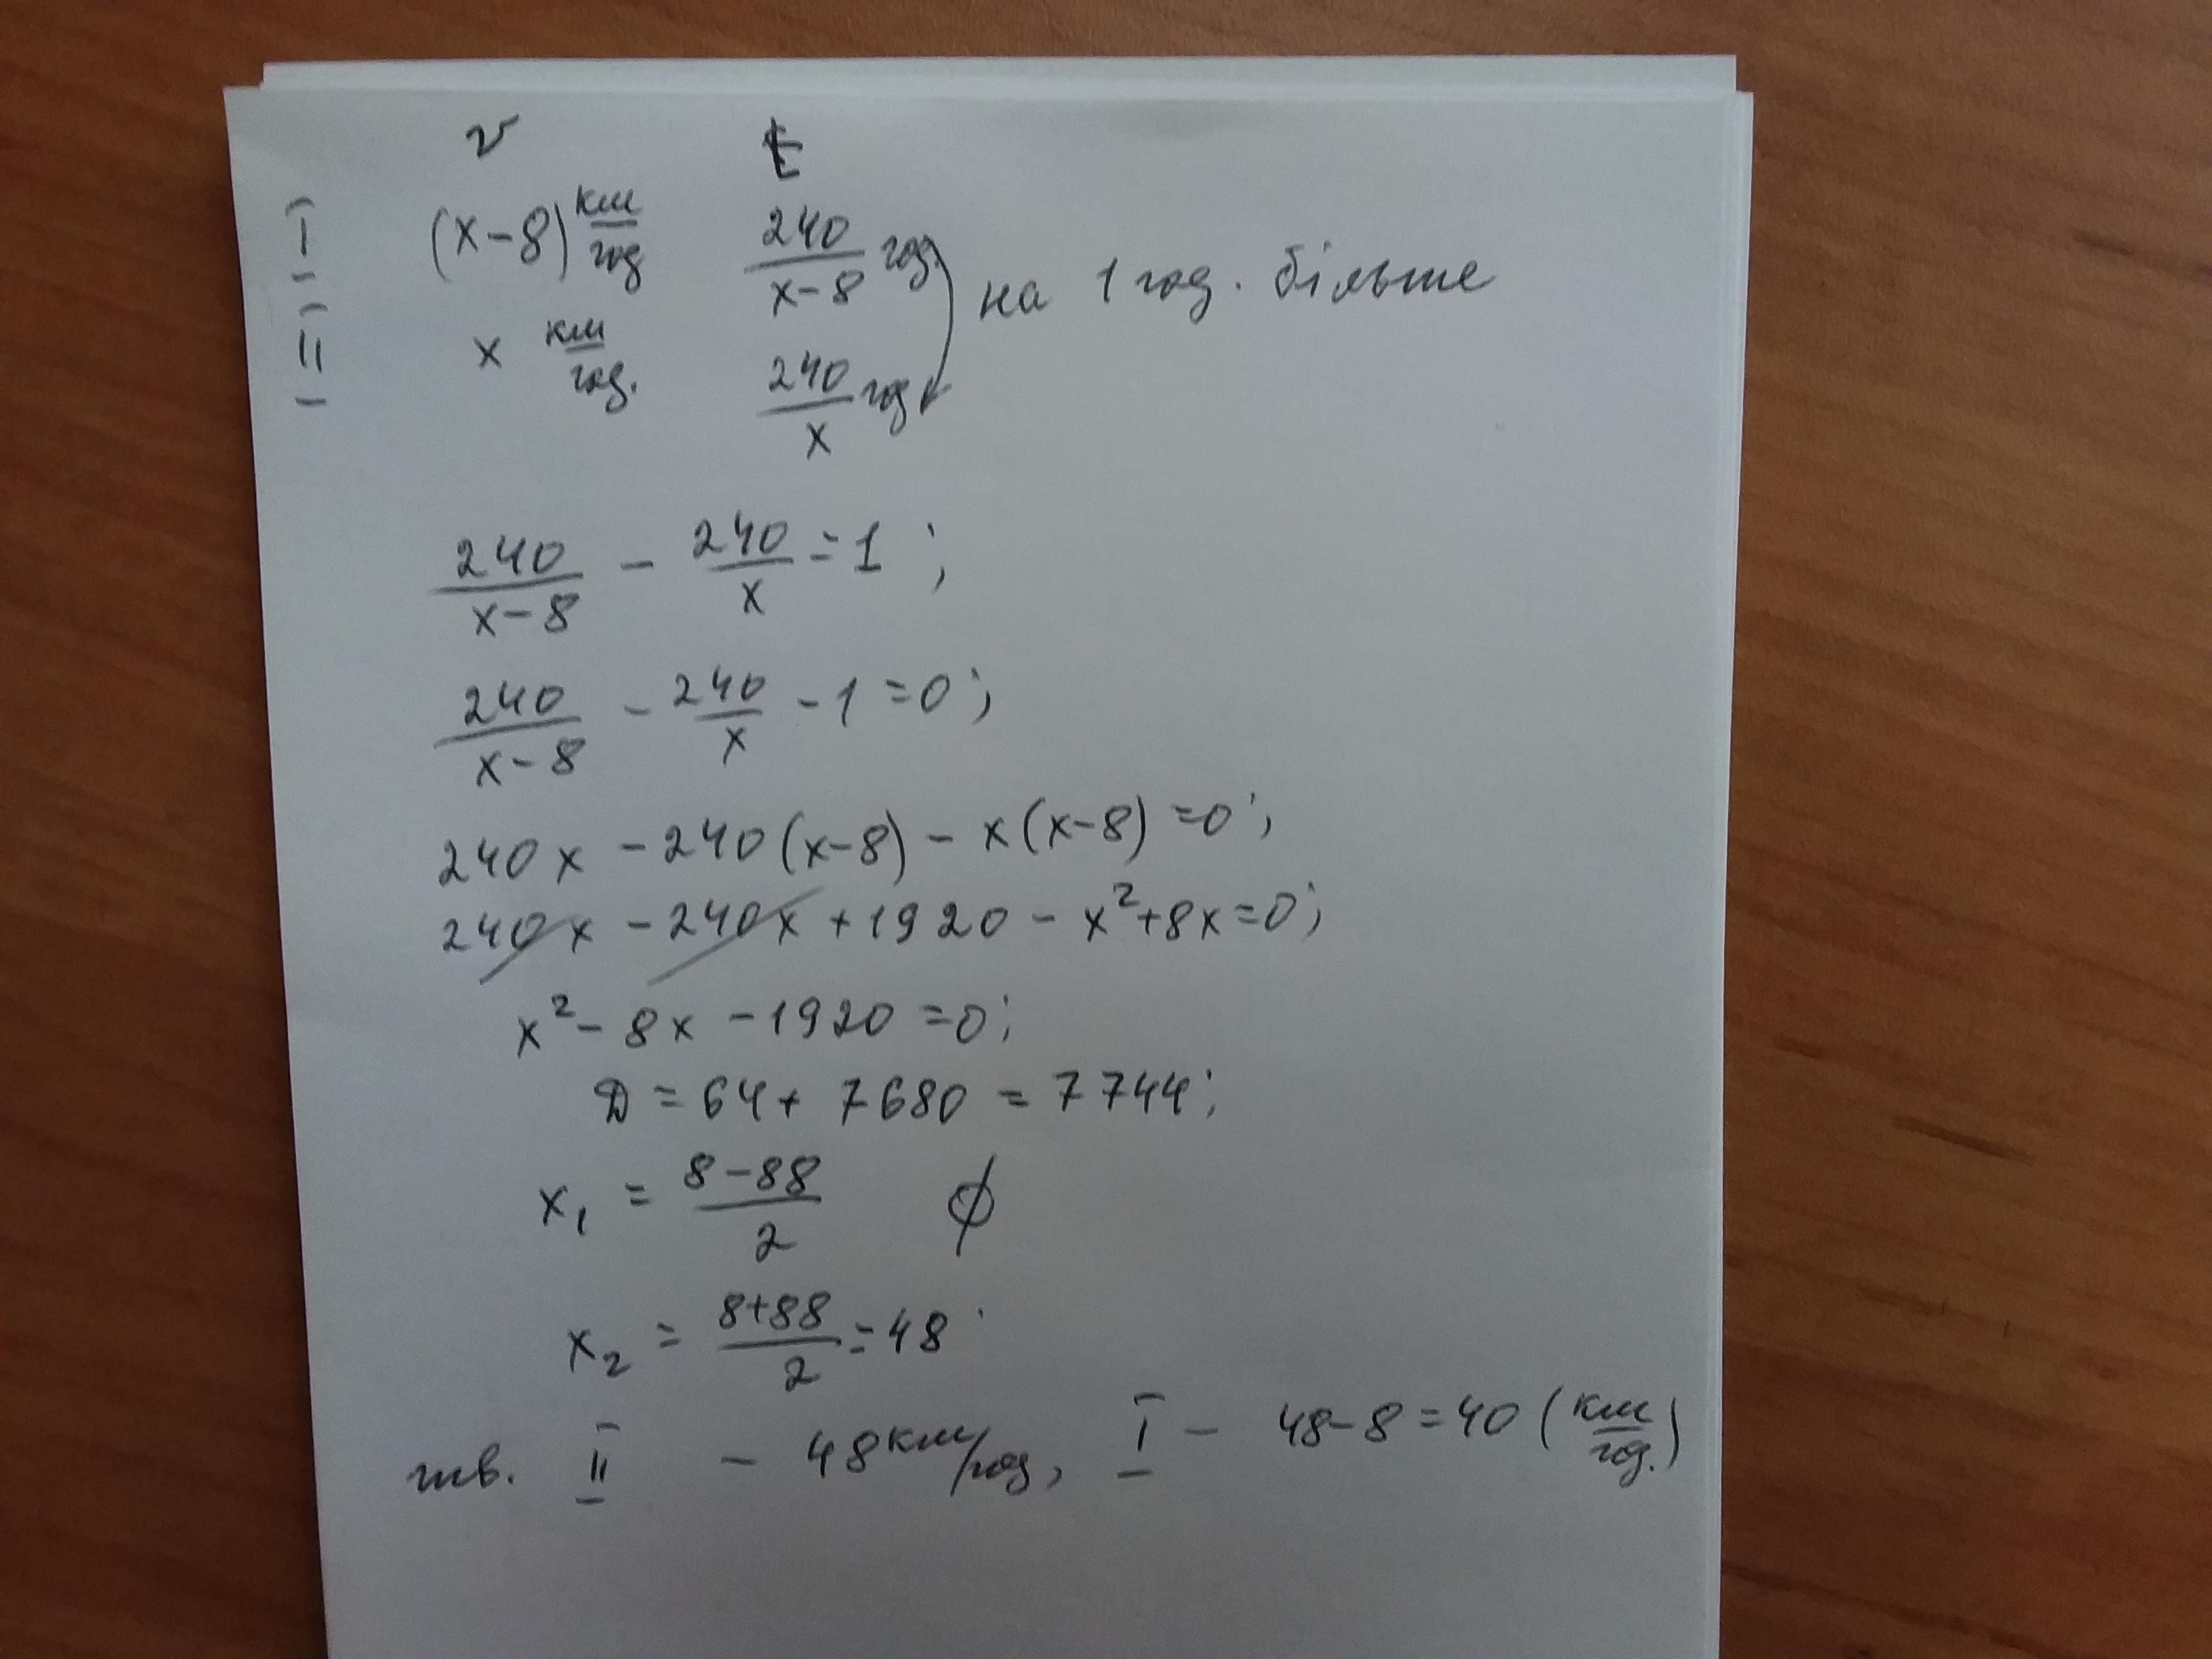 v t
I (x-8) км/год 240/(x-8) год. на 1 год. більше
II x км/год. 240/x год
240/(x-8) - 240/x = 1;
240/(x-8) - 240/x - 1 = 0;
240x - 240(x-8) - x(x-8) = 0;
240x - 240x + 1920 - x² + 8x = 0;
x² - 8x - 1920 = 0;
D = 64 + 7680 = 7744;
x₁ = (8-88)/2 ∅
x₂ = (8+88)/2 = 48
II - 48 км/год, I - 48-8=40 (км/год.)